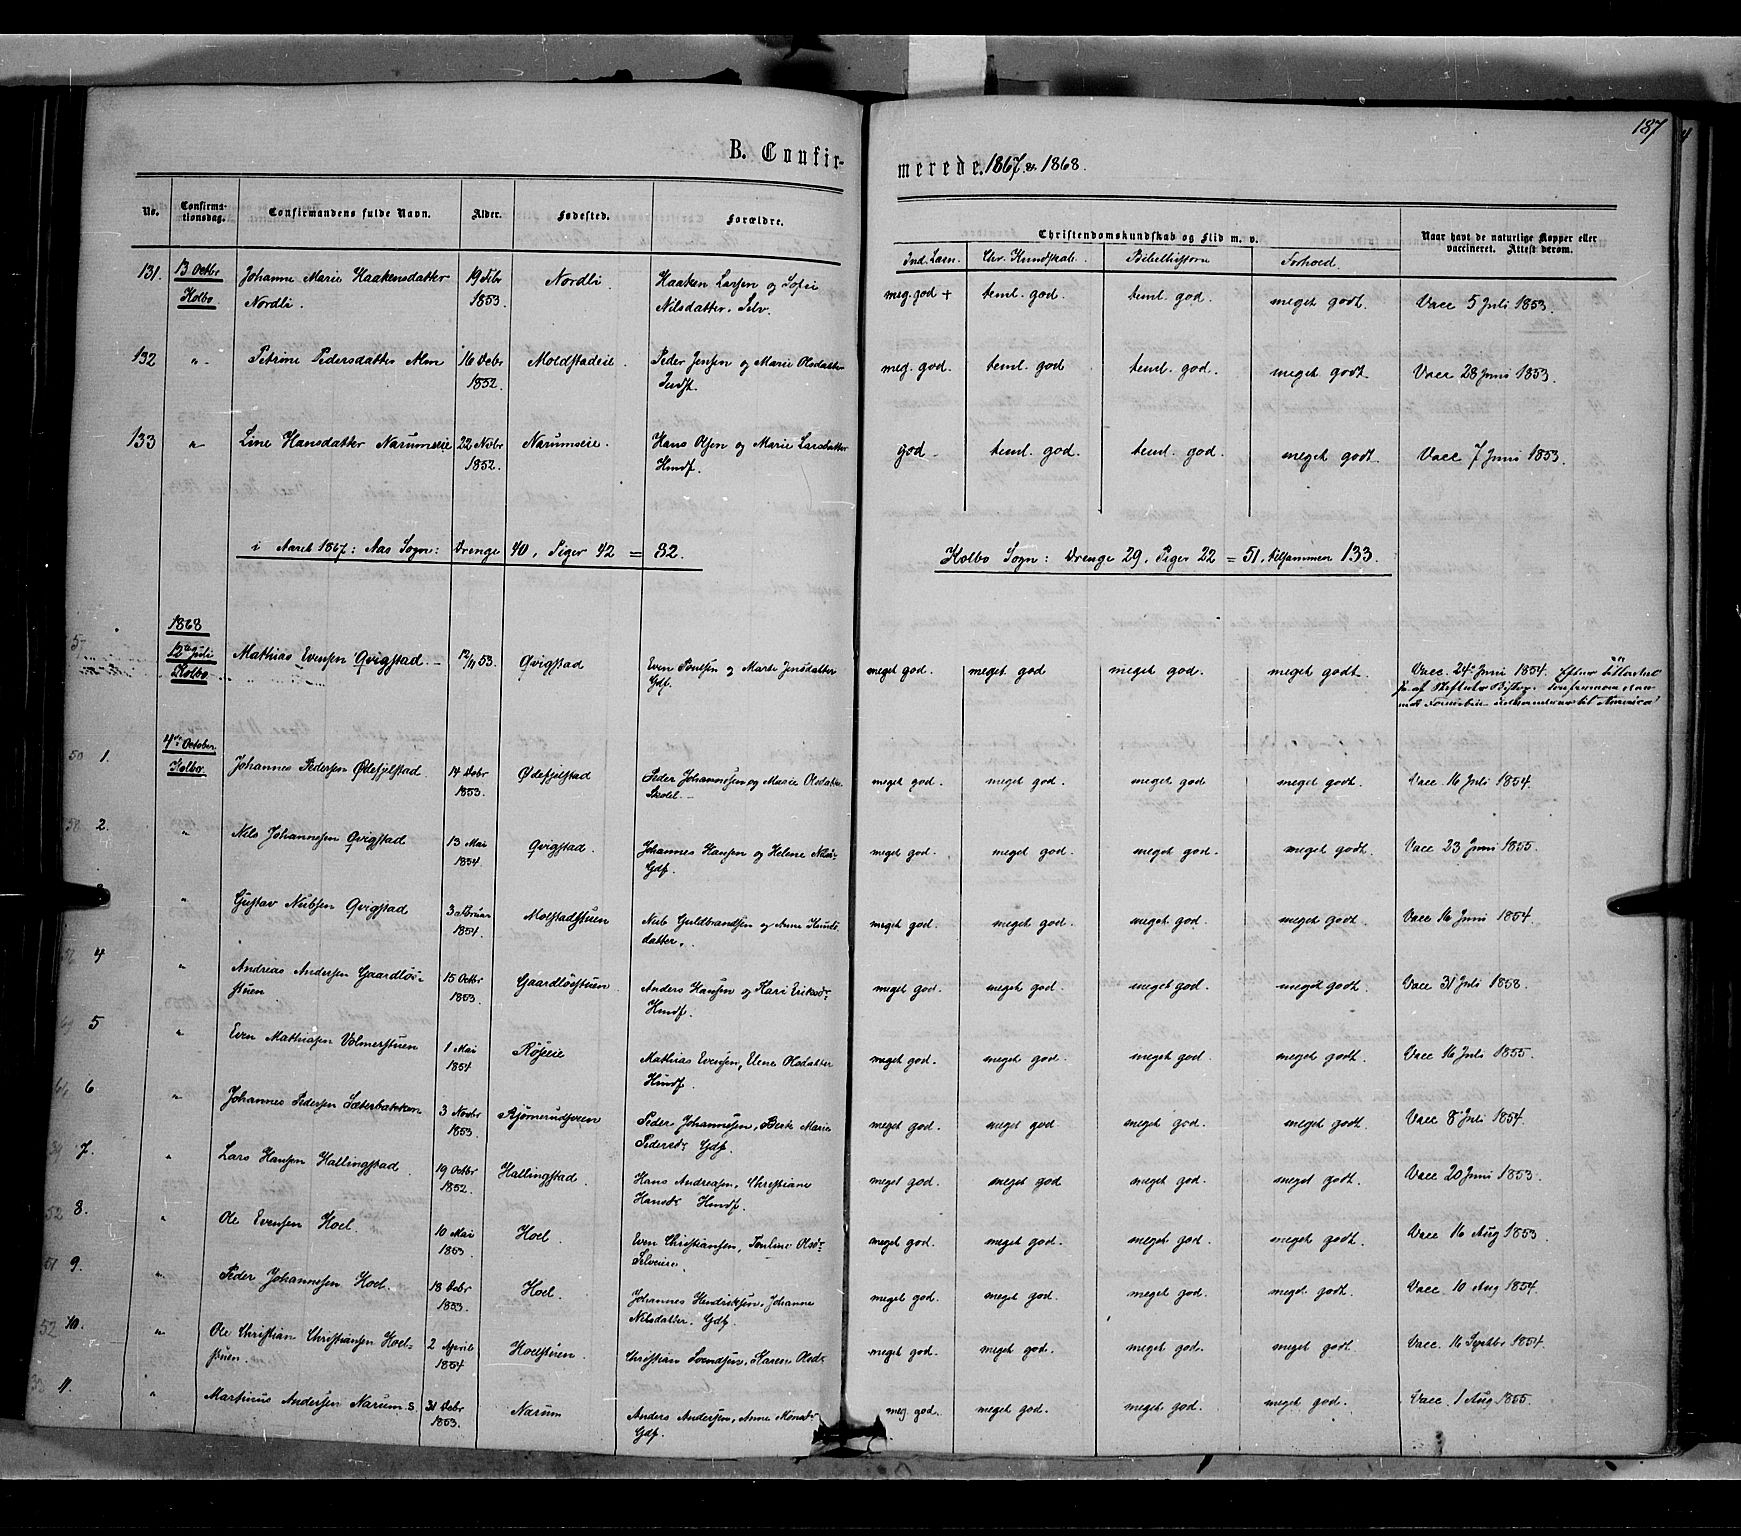 187
B. Confir-
merede. 1867 & 1868.
No.
Confirma-
tionsdag.
Confirmandens fulde Navn.
Alder.
Fødested.
Forældre.
Christendomskundskab og Flid m. v.
Naar havt de naturlige Kopper eller
vaccineret. Attest derom.
Chr. Kundskab.
Bibelhistorie
Forhold.
131. 13 Octbr Johanne Marie Haakensdatter 19 Febr Nordli Haaken Larsen og Sofie meg. god + teml. god. teml. god. meget godt. Vacc 5 Juli 1853.
Holbo Nordli. 1853. Nilsdatter. Selv.
132 " Petrine Pedersdatter Alm 16 Debr Moldstadeie. Peder Jensen og Marie Olsdatter meg. god. teml. god teml. god. meget godt Vacc 28 Juni 1853.
1852. Indst.
133 " Line Hansdatter Narumseie 22 Novbr Narumseie. Hans Olsen og Marie Larsdatter god teml. god. teml. god. meget godt Vacc 7 Juni 1853.
1852. Huusf.
i Aaret 1867: Aas Sogn: Drenge 40, Piger 42 = 82. Kolbo Sogn: Drenge 29, Piger 22 = 51, tilsammen 133.
1868
12te Juli Mathias Evensen Qvigstad 12/11 53 Qvigstad Even Poulsen og Marte Jensdatter meget god. meget god meget god. meget godt. Vacc. 24 Juni 1854. Efter Tilladelse
Kolbo Gdf. af Stiftets Biskop
til America
4de October
1. Kolbo Johannes Pedersen Ødefjelstad 14 Debr Ødefjelstad Peder Johannesen og Marie Olsdatter meget god. meget god. meget god meget godt. Vacc 16 Juli 1854.
1853.
2. " Nils Johannesen Qvigstad 13 Mai Qvigstad. Johannes Hansen og Helene Nilsd. meget god. meget god. meget god. meget godt. Vacc 23 Juni 1855.
1854 Gdf.
3 " Gustav Neilsen Qvigstad 3 Februar Molstadstuen Neils Guldbrandsen og Anne meget god. meget god. meget god. meget godt. Vacc 16 Juni 1854.
1854. datter.
4 " Andreas Andersen Gaardløs- 15 Octbr Gaardløsstuen. Anders Hansen og Kari Eriksdr meget god. meget god. meget god. meget godt. Vacc 31 Juli 1858.
stuen 1853. Huusf.
5 " Even Mathiasen Volmerstuen 1 Mai Røseie Mathias Evensen, Elene Olsdatter meget god. meget god. meget god meget godt. Vacc 16 Juli 1855.
1854 Huusf.
6 " Johannes Pedersen Sæterbakken 3 Novbr Bjørnerudsveen Peder Johannesen, Berte Marie meget god. meget god meget god. meget godt. Vacc 8 Juli 1854.
1853. Pedersdr Gdf.
7. " Lars Hansen Hallingstad 19 Octbr Hallingstad. Hans Andreasen, Christiane meget god. meget god meget god. meget godt. Vacc 20 Juni 1853.
1852. Hansdr Huusf.
8. " Ole Evensen Hoel. 10 Mai Hoel. Even Christiansen, Pauline Olsdr meget god. meget god. meget god. meget godt. Vacc 16 Aug 1853
1853. Selveier.
9. " Peder Johannesen Hoel. 18 Debr Hoel. Johannes Hendriksen, Johanne meget god. meget god. meget god. meget godt. Vacc 10 Aug 1854.
1853. Nilsdatter. Gdf.
10. " Ole Christian Christiansen Hoel- 2 April Hoelstuen. Christian Svendsen, Karen Olsdr meget god. meget god. meget god. meget god. Vacc 16 Septbr 1854.
stuen. 1854
11. " Martinus Andersen Narum s. 31 Debr Narum Anders Andersen, Anne meg. god. meget god. meget god. meget god. Vacc. 1 Aug 1855.
1853. Gdf.